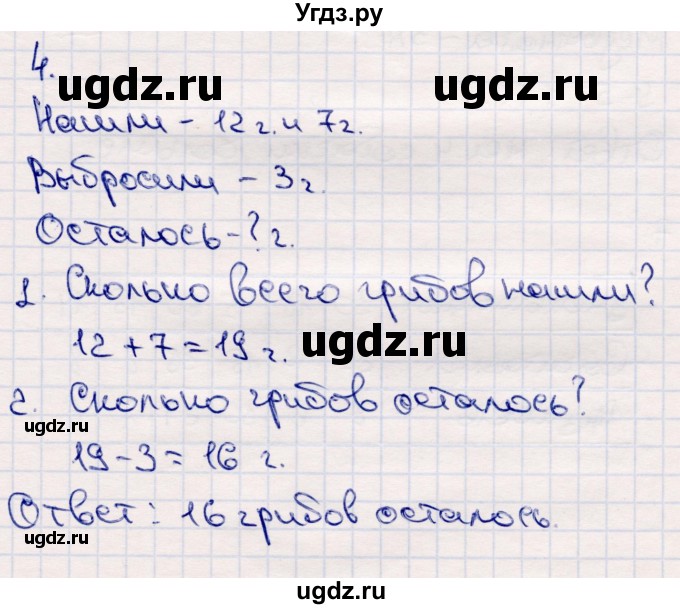 Угдз.ру
4.
ugdz.ru ugdz.ru
Нашли - 12 г. и 7 г.
Выбросили - 3 г.
Осталось - ? г.
1. Сколько всего грибов нашли?
12 + 7 = 19 г.
ugdz.ru
2. Сколько грибов осталось?
ugdz.ru
19 - 3 = 16 г.
Ответ: 16 грибов осталось.
ugdz.ru
ugdz.ru